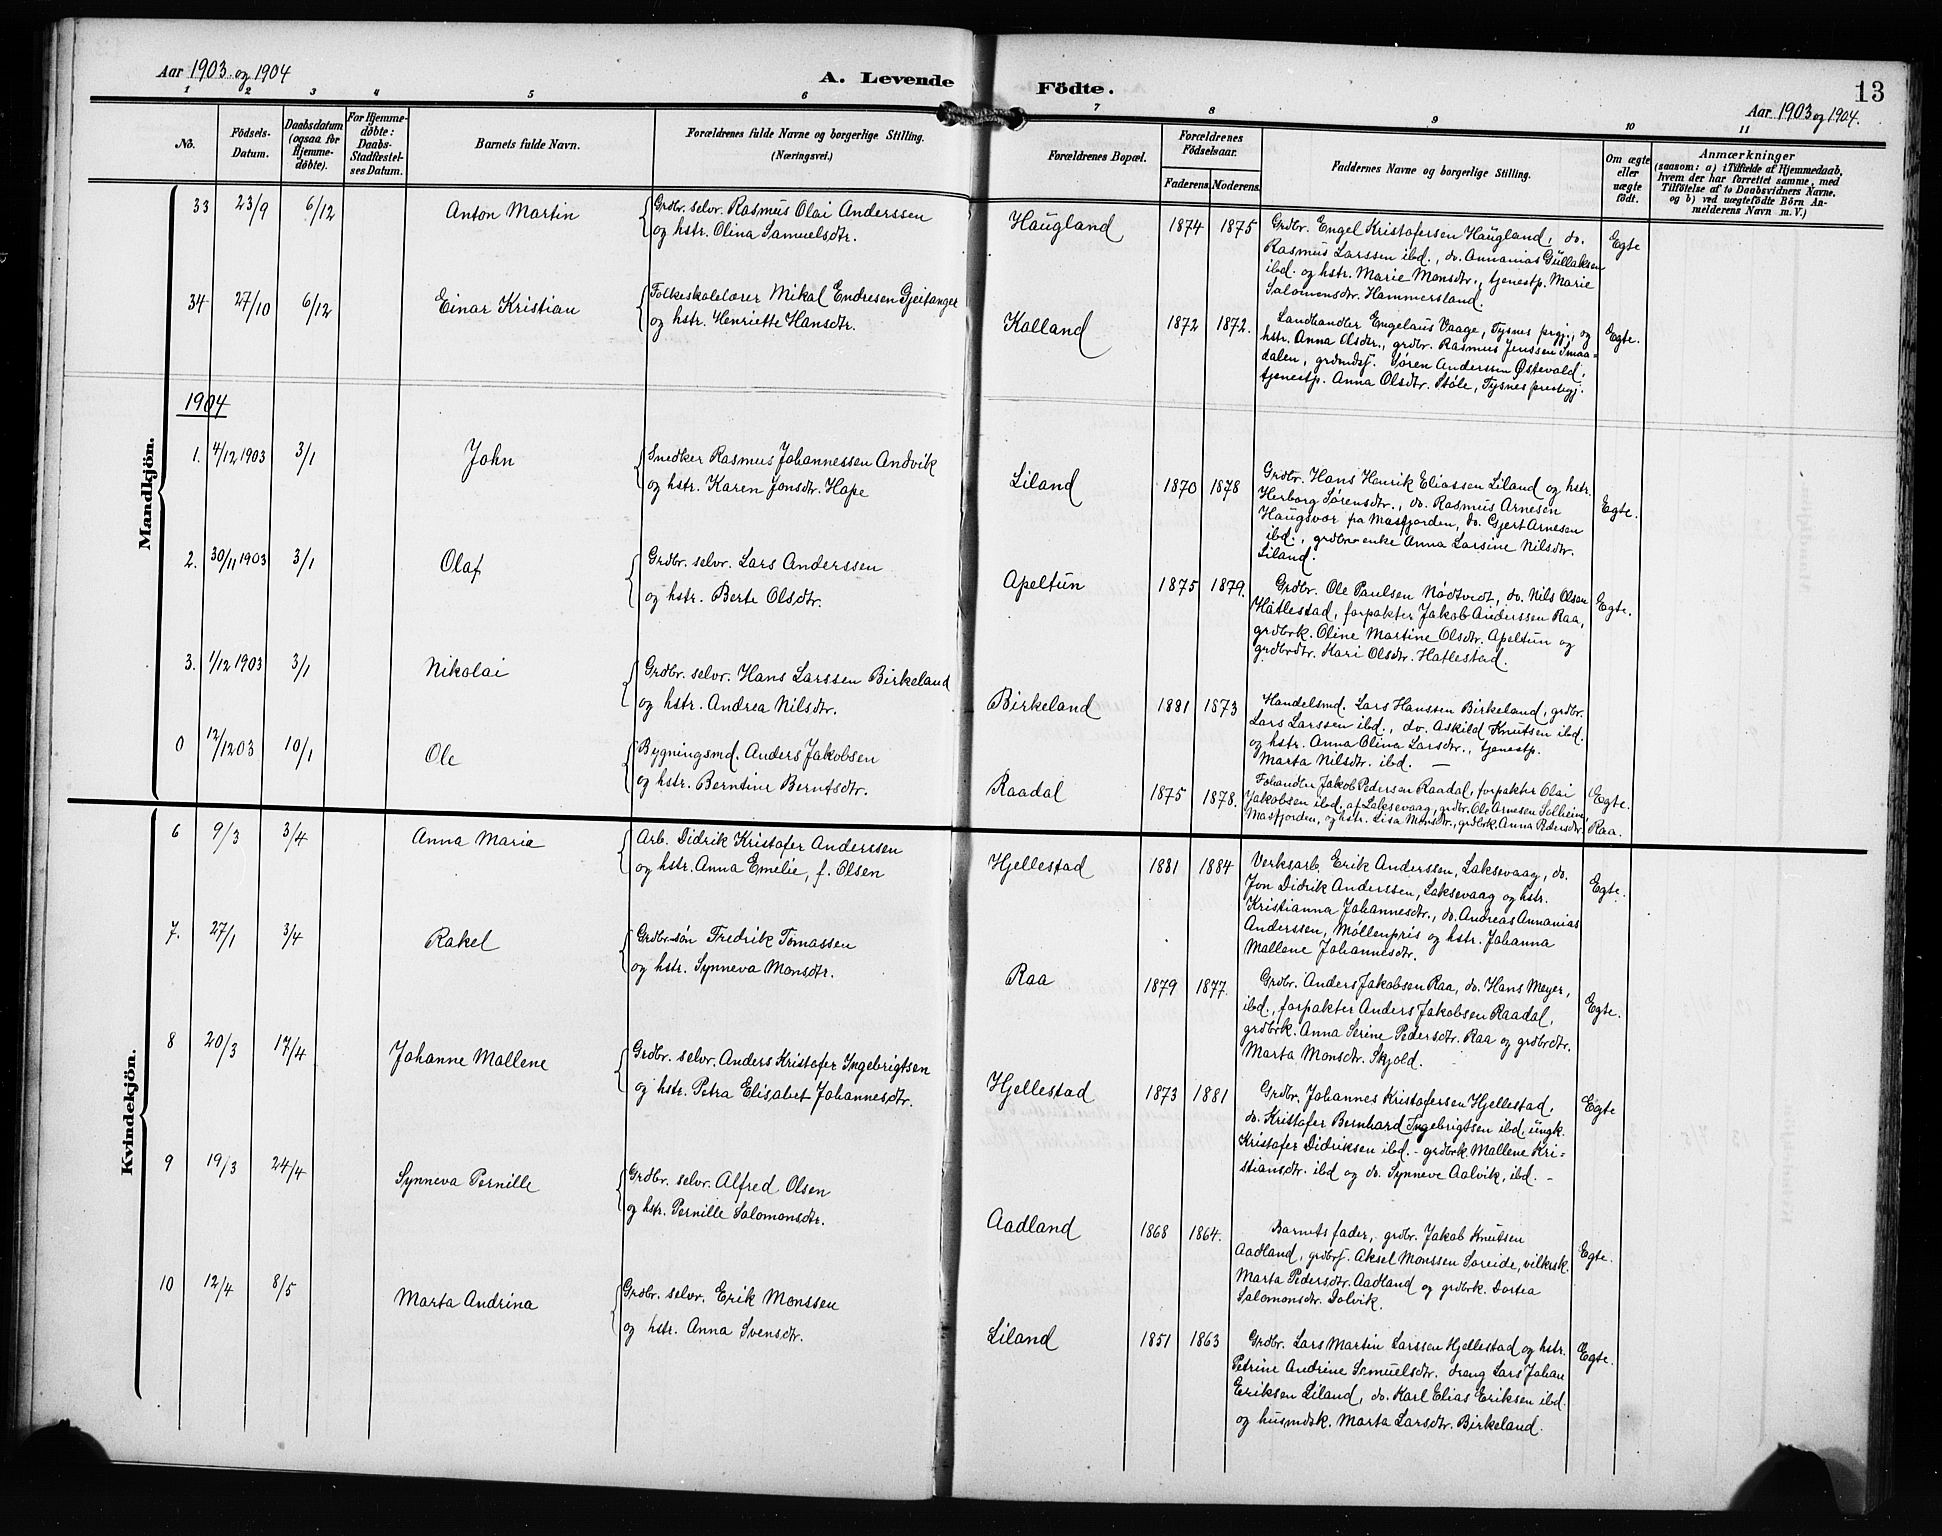 Aar 1903 og 1904
A. Levende
Fødte.
13
Aar 1903 og 1904.
1 2 3 4 5 6 7 8 9 10 11
No.
Födsels-
Datum.
Daabsdatum
(ogsaa for
Hjemme-
døbte).
For Hjemme-
døbte:
Daabs-
Stadfæstel-
ses Datum.
Barnets fulde Navn.
Forældrenes fulde Navne og borgerlige Stilling.
(Næringsvei.)
Forældrenes Bopæl.
Forældrenes
Fødselsaar.
Faderens. Moderens.
Faddernes Navne og borgerlige Stilling.
Om ægte
eller
uægte
født.
Anmærkninger
(saasom: a) i Tilfælde af Hjemmedaab,
hvem der har forrettet samme, med
Tilføielse af to Daabsvidners Navne,
og b) ved uægtefødte Börn An-
melderens Navn m. V.)
Mandkjön.
33 23/9 6/12 Anton Martin
Grdbr. selv. Rasmus Olai Anderssen
og hstr. Olina Samuelsdtr.
Haugland 1874 1875
Grdbr. Engel Kristofersen Haugland, do.
Rasmus Larssen ibd., do. Annanias Gullaksen
ibd. og hstr. Marie Monsdtr., tjenestp. Marie
Salomonsdtr. Hammersland.
Egte
34 27/10 6/12 Einar Kristian
Folkeskolelærer Mikal Endresen Gjeitanger
og hstr. Henriette Hansdtr.
Kalland 1872 1872.
Landhandler Engelaus Vaage, Tysnes prgj., og
hstr. Anna Olsdtr., grdbr. Rasmus Jenssen Smaa-
dalen, grdmdsf. Søren Anderssen Østevold,
tjenestp. Anna Olsdtr. Støle, Tysnes prestegj.
Egte.
1904
1. 4/12 1903 3/1 John
Snedker Rasmus Johannessen Andvik
og hstr. Karen Jonsdtr. Hope
Liland 1870 1878
Grdbr. Hans Henrik Eliassen Liland og hstr.
Herborg Sørensdtr., do. Rasmus Arnesen
Haugsvør fra Masfjorden, do. Gjert Arnesen
ibd., grdbr-enke Anna Larsine Nilsdtr.
Liland.
Egte.
2. 30/11 1903 3/1 Olaf
Grdbr. selv. Lars Anderssen
og hstr. Berte Olsdtr.
Apeltun 1875 1879.
Grdbr. Ole Paulsen Nødtvedt, do. Nils Olsen
Hatlestad, forpakter Jakob Anderssen Raa,
grdbrk. Oline Martine Olsdtr. Apeltun og
grdbrdtr. Kari Olsdtr. Hatlestad.
Egte.
3. 1/12 1903 3/1 Nikolai
Grdbr. selv. Hans Larssen Birkeland
og hstr. Andrea Nilsdtr.
Birkeland 1881 1873
Handelsmd. Lars Hanssen Birkeland, grdbr.
Lars Larssen ibd., do. Askild Knutsen ibd.
og hstr. Anna Olina Larsdtr., tjenestp.
Marta Nilsdtr. ibd. —
0 12/12 03 10/1 Ole
Bygningsmd. Anders Jakobsen
og hstr. Berntine Berntsdtr.
Raadal 1875 1878.
Jakob Pedersen Raadal, forpakter Olai
Jakobsen ibd. af Laksevaag, grdbr. Ole Arnesen Solheim,
Masfjorden, og hstr. Lisa Monsdtr., grdbrk. Anna Pedersdtr.
Raa.
Egte.
Kvindekjön.
6 9/3 3/4 Anna Maria
Arb. Didrik Kristofer Anderssen
og hstr. Anna Emelie, f. Olsen
Hjellestad 1881 1884
Verksarb. Erik Anderssen, Laksevaag, do.
Jon Didrik Anderssen, Laksevaag og hstr.
Kristianna Johannesdtr., do. Andreas Annanias
Anderssen, Møllenpris og hstr. Johanna
Mallene Johannesdtr.
Egte.
7. 27/1 3/4 Rakel
Grdbr-søn Fredrik Tomassen
og hstr. Synneva Monsdtr.
Raa 1879 1877.
Grdbr. Anders Jakobsen Raa, do. Hans Meyer,
ibd., forpakter Anders Jakobsen Raadal,
grdbrk. Anna Serine Pedersdtr. Raa og grdbrdtr.
Marta Monsdtr. Skjold.
Egte.
8 20/3 17/4 Johanne Mallene
Grdbr. selv. Anders Kristofer Ingebrigtsen
og hstr. Petra Elisabet Johannesdtr.
Hjellestad 1873 1881
Grdbr. Johannes Kristofersen Hjellestad,
do. Kristofer Bernhard Ingebrigtsen ibd, ungk.
Kristofer Didriksen ibd. - grdbrk. Mallene Kri-
stiansdtr. ibd og do. Synneve Aalvik, ibd. -
Egte
9 19/3 24/4 Synneva Pernille
Grdbr. selv. Alfred Olsen
og hstr. Pernille Salomonsdtr.
Aadland 1868 1864.
Barnets fader, grdbr. Jakob Knutsen
Aadland, grdbrs. Aksel Monssen Søreide, vilkrsk.
Marta Pedersdtr. Aadland og grdbrk. Dortea
Salomonsdtr. Dolvik.
Egte.
10 12/4 8/5 Marta Andrina
Grdbr. selv. Erik Monssen
og hstr. Anna Svensdtr.
Liland 1851 1863
Grdbr. Lars Martin Larssen Hjellestad og hstr.
Petrine Andrine Samuelsdtr. dreng Lars Johan
Eriksen Liland, do. Karl Elias Eriksen ibd.
og husmdsk. Marta Larsdtr. Birkeland.
Egte.